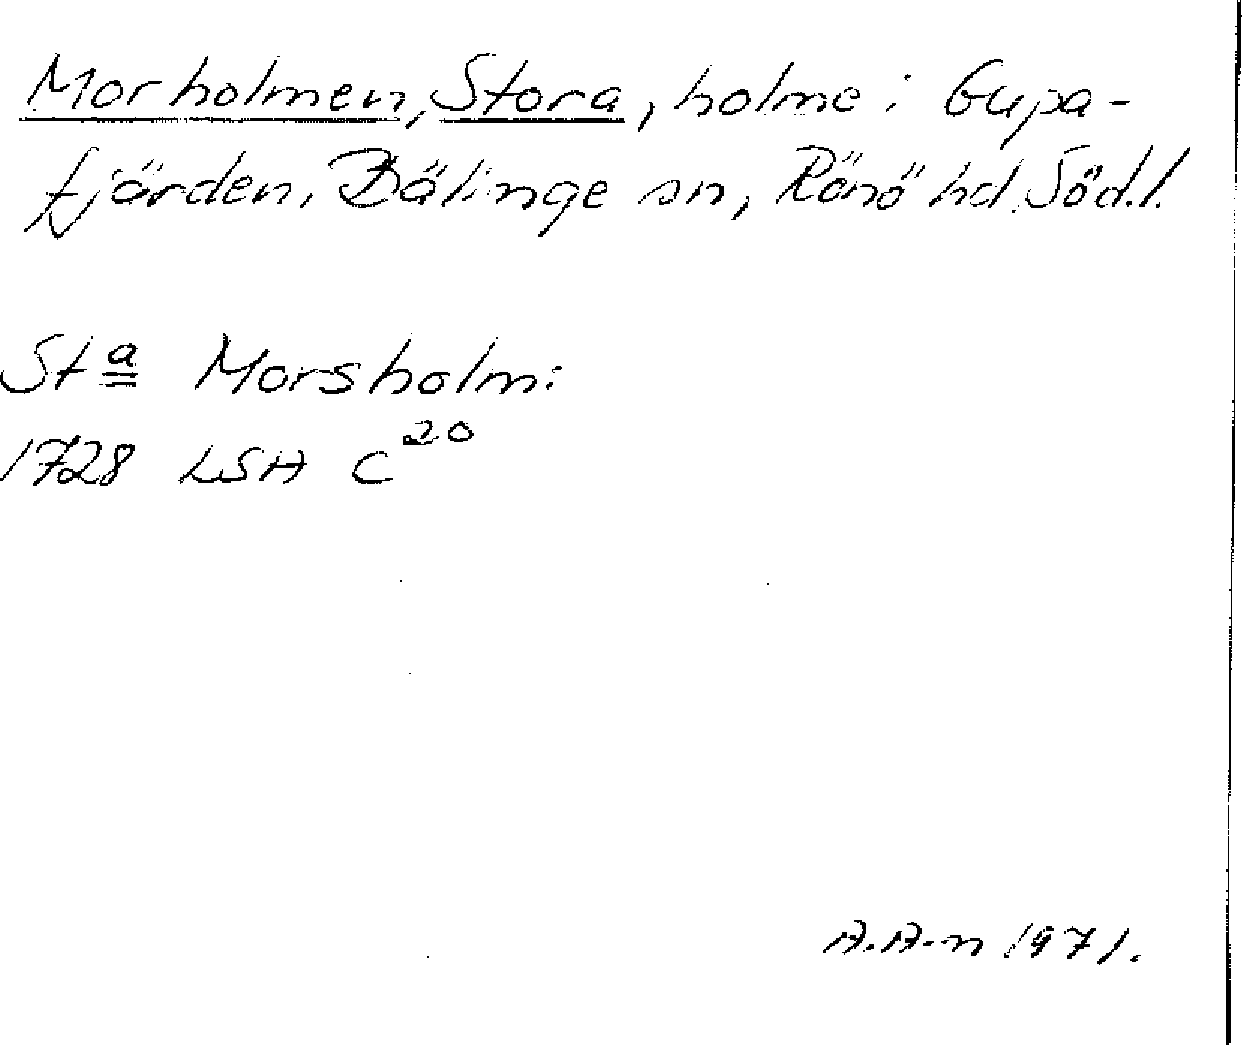 Morholmen, Stora, holme i Gupa-
fjärden, Bälinge sn, Rönö hd. Söd.l.
Stª Morsholm:
1728 LSA C²⁰
A.A-n 1971.